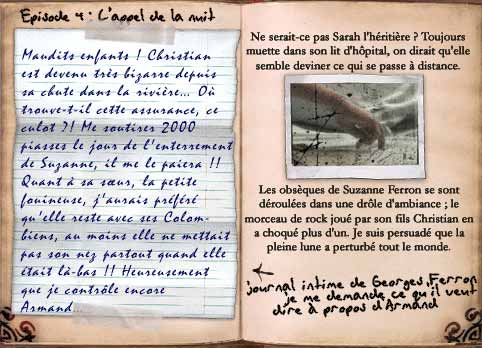 Episode 4 : L'appel de la nuit
Maudits enfants ! Christian
est devenu très bizarre depuis
sa chute dans la rivière... Où
trouve-t-il cette assurance, ce
culot ?! Me soutirer 2000
piasses le jour de l'enterrement
de Suzanne, il me le paiera !!
Quant à sa sœur, la petite
fouineuse, j'aurais préféré
qu'elle reste avec ses Colom-
biens, au moins elle ne mettait
pas son nez partout quand elle
était là-bas !! Heureusement
que je contrôle encore
Armand...
Ne serait-ce pas Sarah l'héritière ? Toujours
muette dans son lit d'hôpital, on dirait qu'elle
semble deviner ce qui se passe à distance.
Les obsèques de Suzanne Ferron se sont
déroulées dans une drôle d'ambiance ; le
morceau de rock joué par son fils Christian en
a choqué plus d'un. Je suis persuadé que la
pleine lune a perturbé tout le monde.
journal intime de Georges Ferron
je me demande ce qu'il veut
dire à propos d'Armand